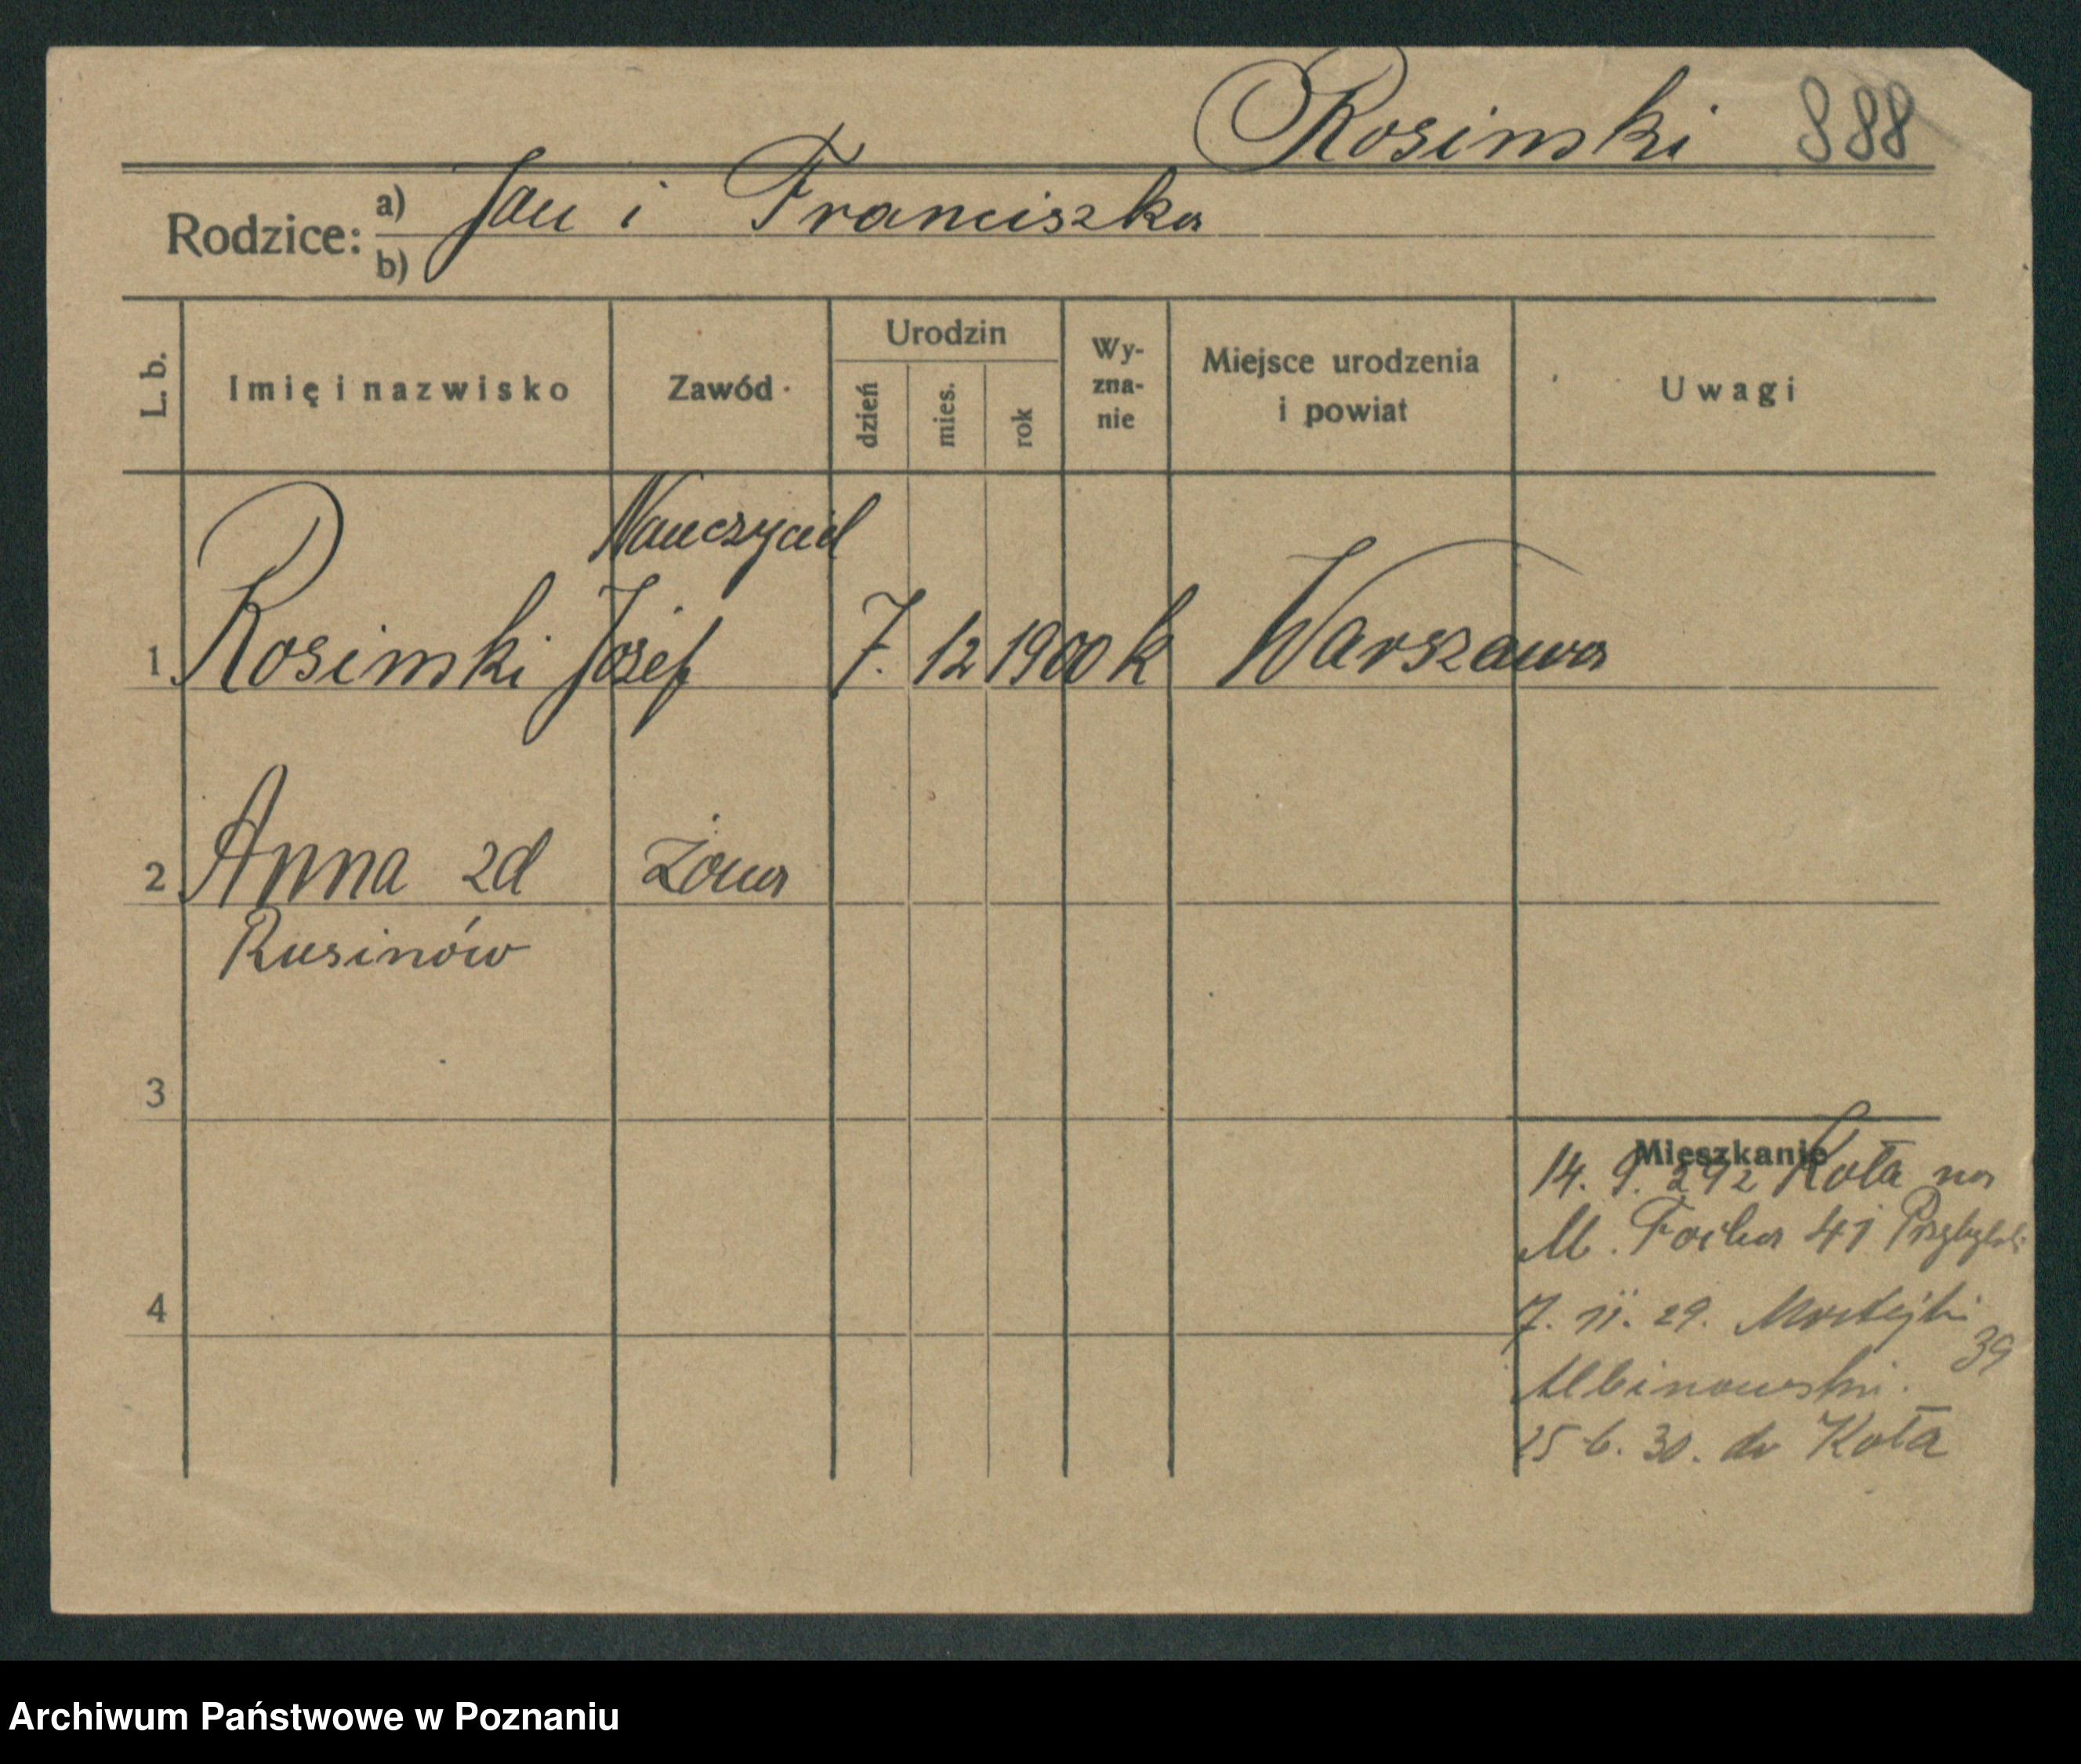 Rosimski 888
Rodzice: a) Jan i Franciszka
b)
L. b. Imię i nazwisko Zawód Urodzin dzień mies. rok Wy-zna-nie Miejsce urodzenia i powiat Uwagi
Nauczyciel
1 Rosimski Józef 7. 12 1900 k Warszawa
2 Anna zd Żona
Rusinów
3
Mieszkanie
14. 9. 292 Koła na
M. Focha 41 Przybylski
4
7. 11. 29. 39
Albinowski.
25-6. 30. do Koła
Archiwum Państwowe w Poznaniu